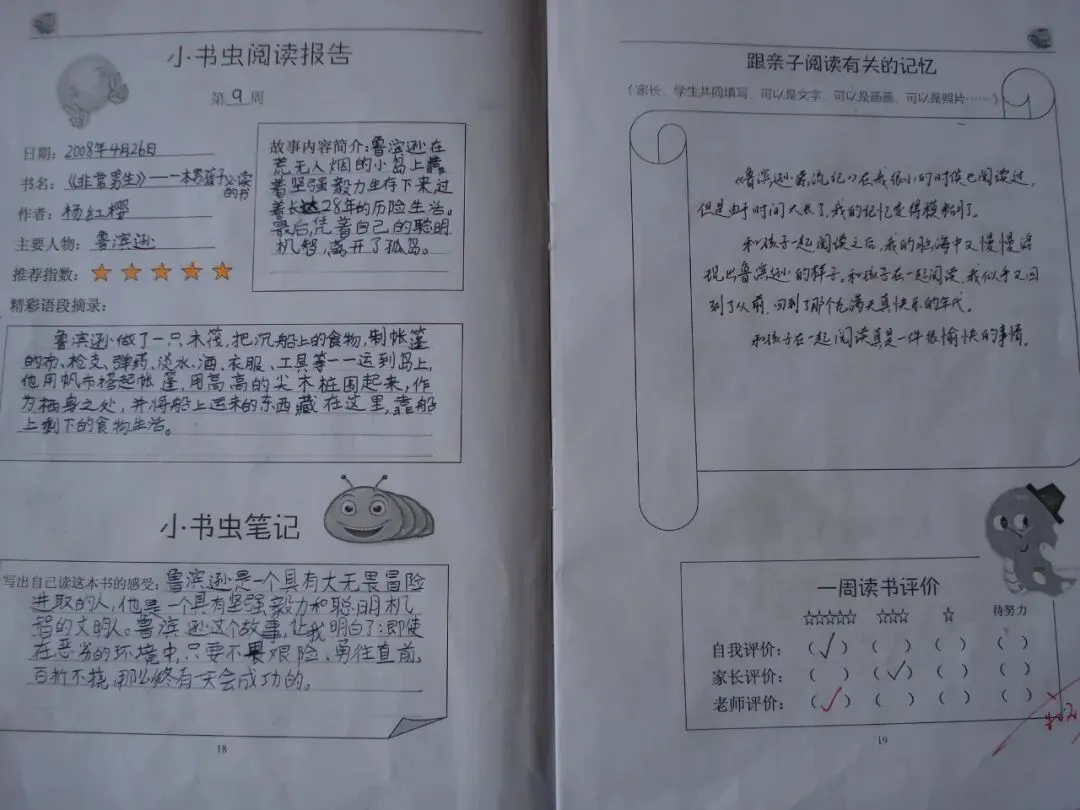 小书虫阅读报告
第 9 周
日期：2008年4月26日
书名：《非常男生》——一本男孩子必读的书
作者：杨红樱
主要人物：鲁滨逊
推荐指数：
故事内容简介：鲁滨逊在
荒无人烟的小岛上靠
着坚强毅力生存下来，过
着长达28年的历险生活。
最后，凭着自己的聪明
机智，离开了孤岛。
精彩语段摘录：
鲁滨逊做了一只木筏，把沉船上的食物，制帐篷
的布、枪支、弹药、淡水、酒、衣服、工具等一一运到岛上，
他用帆布搭起帐篷，用高高的尖木桩围起来，作
为栖身之处，并将船上运来的东西藏在这里，靠船
上剩下的食物生活。
小书虫笔记
写出自己读这本书的感受：鲁滨逊是一个具有大无畏冒险
进取的人，他是一个具有坚强毅力和聪明机
智的文明人。鲁滨逊这个故事，让我明白了：即使
在恶劣的环境中，只要不畏艰险、勇往直前，
百折不挠，那么终有一天会成功的。
18
跟亲子阅读有关的记忆
（家长、学生共同填写，可以是文字，可以是画画，可以是照片……）
《鲁滨逊漂流记》在我很小的时侯也阅读过，
但是由于时间太长了，我的记忆变得模糊了。
和孩子一起阅读之后，我的脑海中又慢慢浮
现出鲁滨逊的样子。和孩子在一起阅读，我似乎又回
到了从前，回到了那个充满天真快乐的年代。
和孩子在一起阅读真是一件很愉快的事情。
一周读书评价
☆☆☆☆☆ ☆☆☆ ☆ 待努力
自我评价：（✓）（ ）（ ）（ ）
家长评价：（ ）（✓）（ ）（ ）
老师评价：（✓）（ ）（ ）（ ）
19